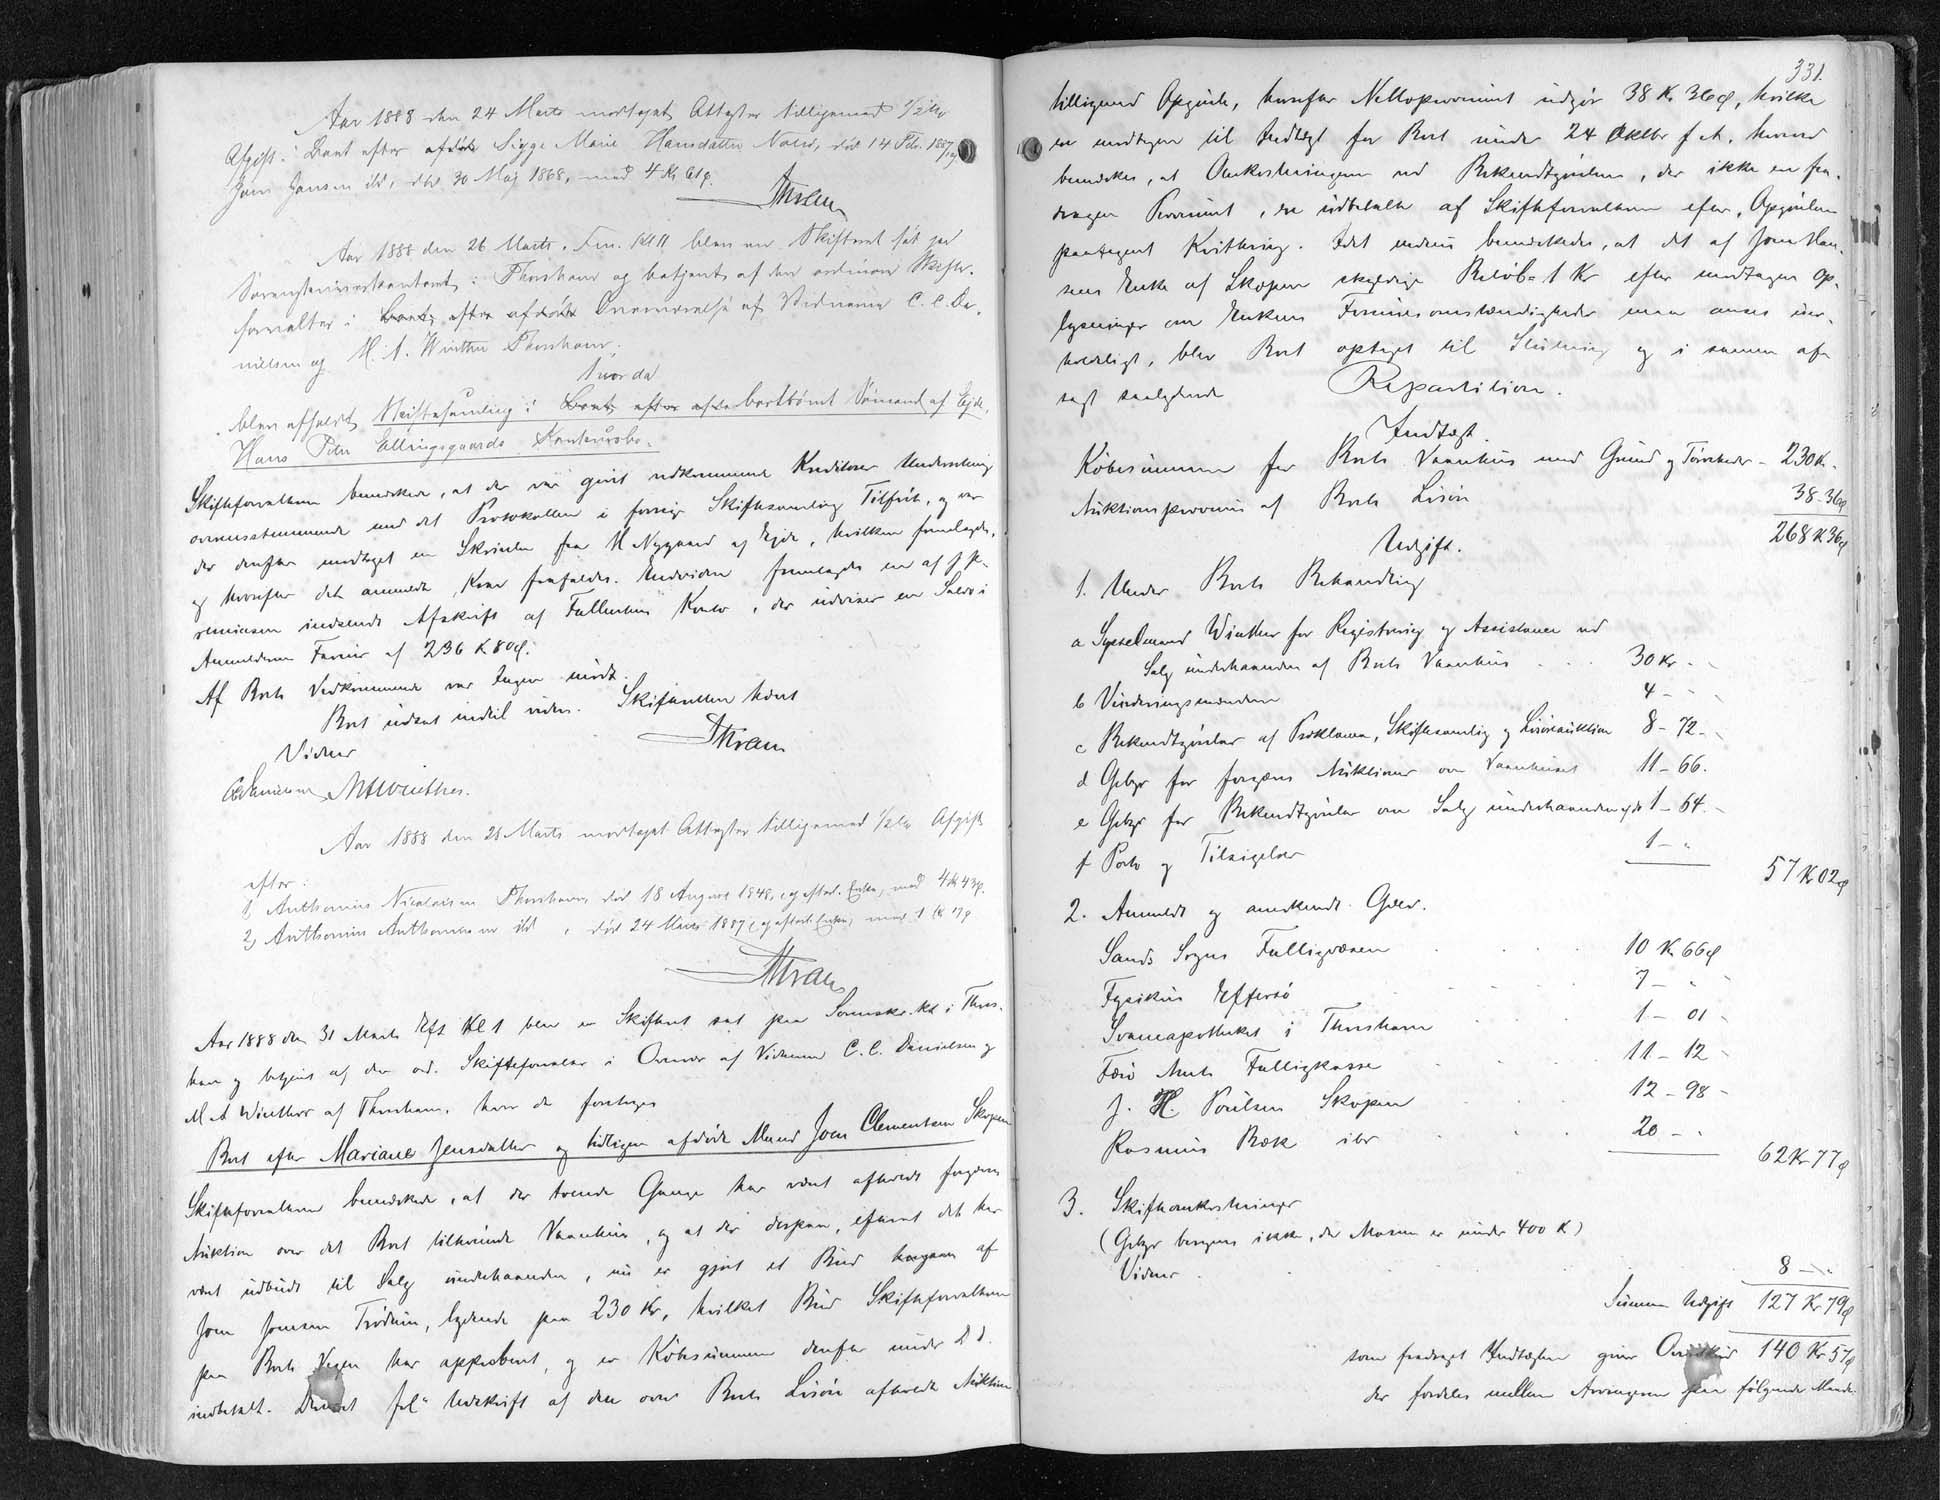 Aar 1888 den 24 Marts modtaget Attester tilligemed 1/2 %
Afgift i Boet efter afdøde Sigge Marie Hansdatter Nolsø, død 14 Feb. 1887
Jens Jansen ibd, død 30 Maj 1868, med 4 Kr 61 ø.
Aar 1888 den 26 Marts, Fm. Kl 11 blev en Skifteret sat paa
Sorenskriverkontoret i Thorshavn og betjent af den ordinære Skifte-
forvalter i Overværelse af Vidnerne C. C. Da-
nielsen og M. A. Winther Thorshavn.
hvor da
blev afholdt Skiftesamling i Boet efter bortrømt Sømand af Ejde,
Hans Peter Ellingsgaards Konkursbo.
Skifteforvalteren bemærkede, at der var givet vedkommende Kreditorer Underretning
overensstemmende med det Protokollen i forrige Skiftesamling Tilførte, og var
der derefter modtaget en Skrivelse fra H Nygaard af Ejde, hvilken fremlagdes,
og hvorefter det anmeldte Krav frafaldes. Endvidere fremlagdes en af
indsendt Afskrift af Fallentens Konto, der udviser en Saldo i
Anmelderens Favør af 236 K 80 ø.
Af Boets Vedkommende var Ingen mødt.
Boet udsat indtil videre. Skifteretten hævet
Vidner
CCDanielsen MAWinther.
Aar 1888 den 28 Marts modtaget Attester tilligemed 1/2 % Afgift
efter:
1, Anthonius Nicolaisen Thorshavn, død 18 August 1848, og efterl. Enke, med 4 Kr 43 ø.
2, Anthonius Anthoniussen ibd, død 24 Marts 1887 og efterl. Enke, med 1 Kr 17 ø
Aar 1888 den 31 Marts Eft Kl 1 blev en Skifteret sat paa Sorenskr. kt i Thors-
havn og betjent af den ord. Skifteforvalter i Overvær af Vidnerne C. C. Danielsen og
M A Winther af Thorshavn, hvor da foretoges
Boet efter Mariane Jensdatter og tidligere afdøde Mand Joen Clementsen Skopen
Skifteforvalteren bemærkede, at der tvende Gange har været afholdt forgjæves
Auktion over det Boet tilhørende Vaanhus, og at der despaa, efterat det har
været udbudt til Salg underhaanden, nu er gjort et Bud herpaa af
Joen Joensen Trødum, lydende paa 230 Kr, hvilket Bud Skifteforvalteren
paa Boets Vegne har approberet, og er Købesummen derefter under D. D.
indbetalt. Udskrift af den over Boets Løsøre afholdte Auktion
331.
tilligemed Opgørelse, hvorefter Nettoprovenuet udgør 38 Kr 36 ø, hvilke
er modtagen til Indtægt for Boet under 24 Oktbr f. A. hvorved
bemærkes, at Omkostningerne ved Bekendtgørelsen, der ikke ere fra-
dragne Provenuet, ere udbetalte af Skifteforvalteren efter, Opgørelsen
paategnet Kvittering. Idet endnu bemærkedes, at det af Joen Han-
sens Enke af Skopen skyldige Beløb = 1 Kr efter modtagen Op-
lysninger om Enkens Formuesomstændigheder maa anses uer-
holdeligt, blev Boet optaget til Slutning og i samme af-
sagt saalydende Repartition.
Indtægt.
Købesummen for Boets Vaanhus med Grund og Tørveheder - 230 Kr -
Auktionsprovenu af Boets Løsøre 38 - 36 ø
268 K 36 ø
Udgift.
1. Under Boets Behandling
a Sysselmand Winther for Registrering og Assistance ved
Salg underhaanden af Boets Vaanhus . . . 30 Kr - -
b Vurderingsmændene 4 - - -
c Bekendtgørelser af Proklama, Skiftesamling og Løsøreauktion 8 - 72 -
d Gebyr for forgæves Auktioner over Vaanhuset 11 - 66.
e Gebyr for Bekendtgørelse om Salg underhaanden 1 - 64 -
f Porto og Tilsigelser 1 - "
57 K 02 ø
2. Anmeldt og anerkendt Gæld.
Sands Sogns Fattigvæsen 10 Kr 66 ø
Fysikus Effersø 7 - " -
Svaneapotheket i Thorshavn 1 - 01 -
Færø Amts Fattigkasse 11 - 12 -
J. H. Poulsen Skopen 12 - 98 -
Rasmus Bæk ibr 20 - "
62 Kr 77 ø
3. Skifteomkostninger
(Gebyr beregnes ikke, da Massen er under 400 K)
Vidner 8 - "
Summa Udgift 127 Kr 79 ø
som fradraget Indtægten giver Overskud 140 Kr 57 ø
der fordeles mellem Arvingerne paa følgende Maade